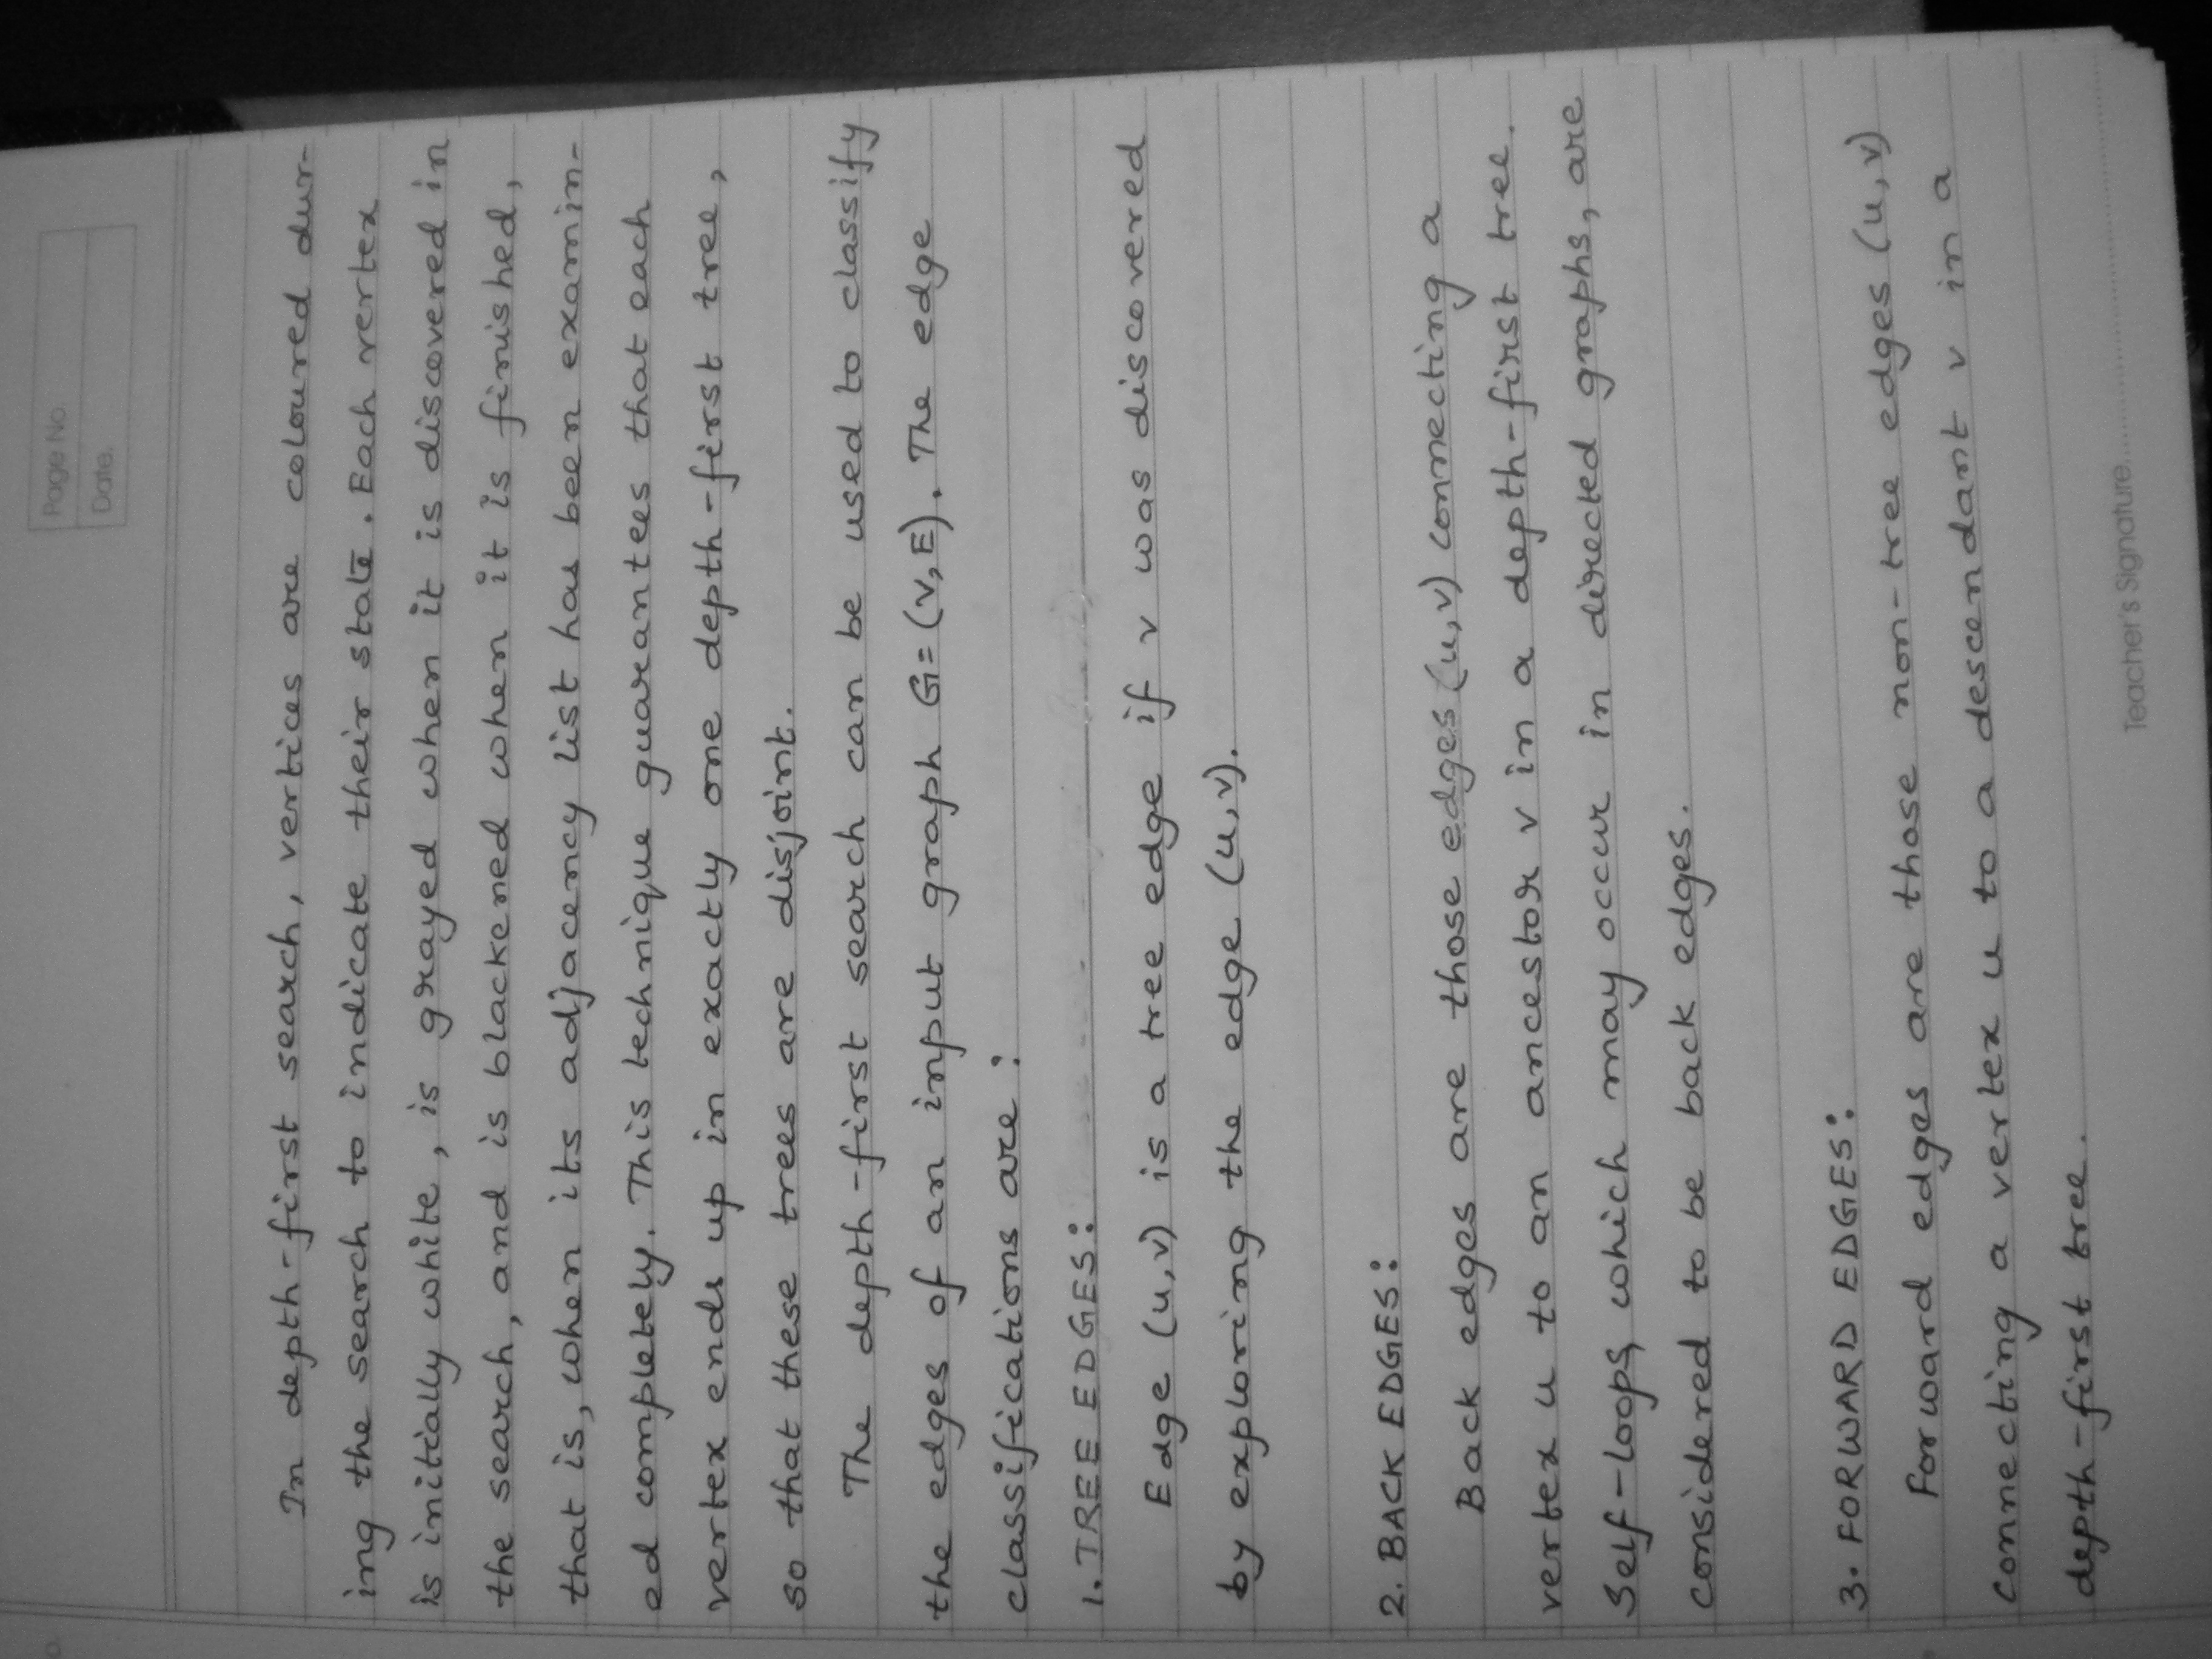 Page No.
Date.
In depth-first search, vertices are coloured dur-
ing the search to indicate their state. Each vertex
is initially white, is grayed when it is discovered in
the search, and is blackened when it is finished,
that is, when its adjacency list has been examin-
ed completely. This technique guarantees that each
vertex ends up in exactly one depth-first tree,
so that these trees are disjoint.
The depth-first search can be used to classify
the edges of an input graph G=(V,E). The edge
classifications are:
1. TREE EDGES:
Edge (u,v) is a tree edge if v was discovered
by exploring the edge (u,v).
2. BACK EDGES:
Back edges are those edges (u,v) connecting a
vertex u to an ancestor v in a depth-first tree.
Self-loops, which may occur in directed graphs, are
considered to be back edges.
3. FORWARD EDGES:
Forward edges are those non-tree edges (u,v)
connecting a vertex u to a descendant v in a
depth-first tree.
Teacher's Signature